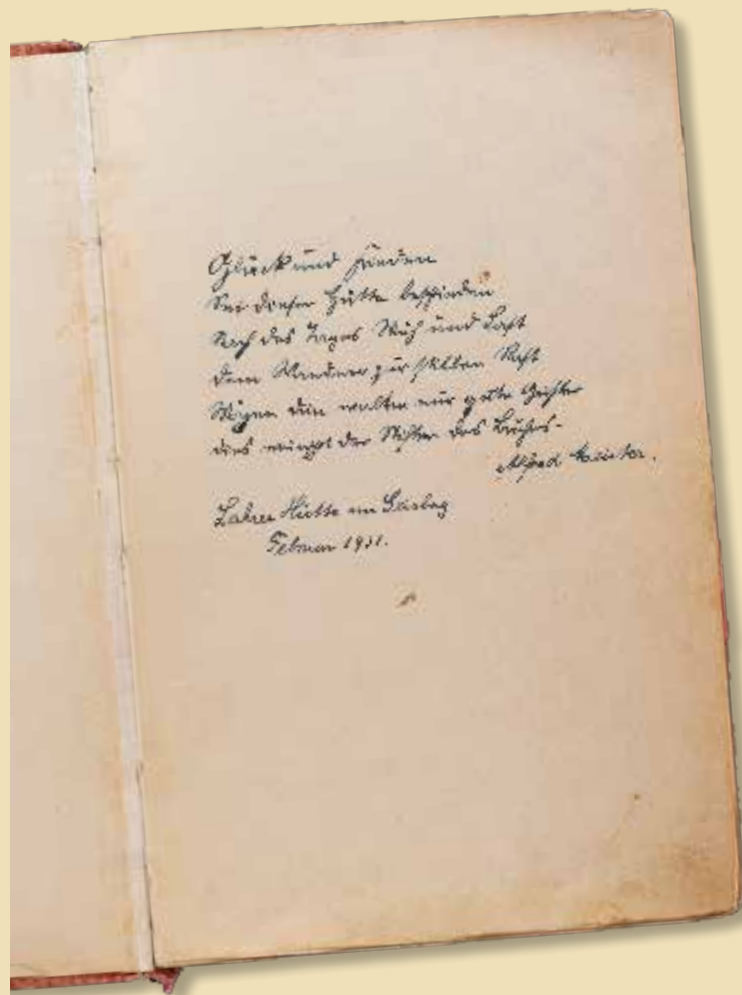 Glück und Frieden
Sei dieser Hütte beschieden
Nach des Tages Müh und Last
dem Wandrer zur stillen Rast
Mögen drin walten nur gute Geister
dies wünscht der Stifter des Buches-
Alfred
Lahrer Hütte am
Februar 1931.